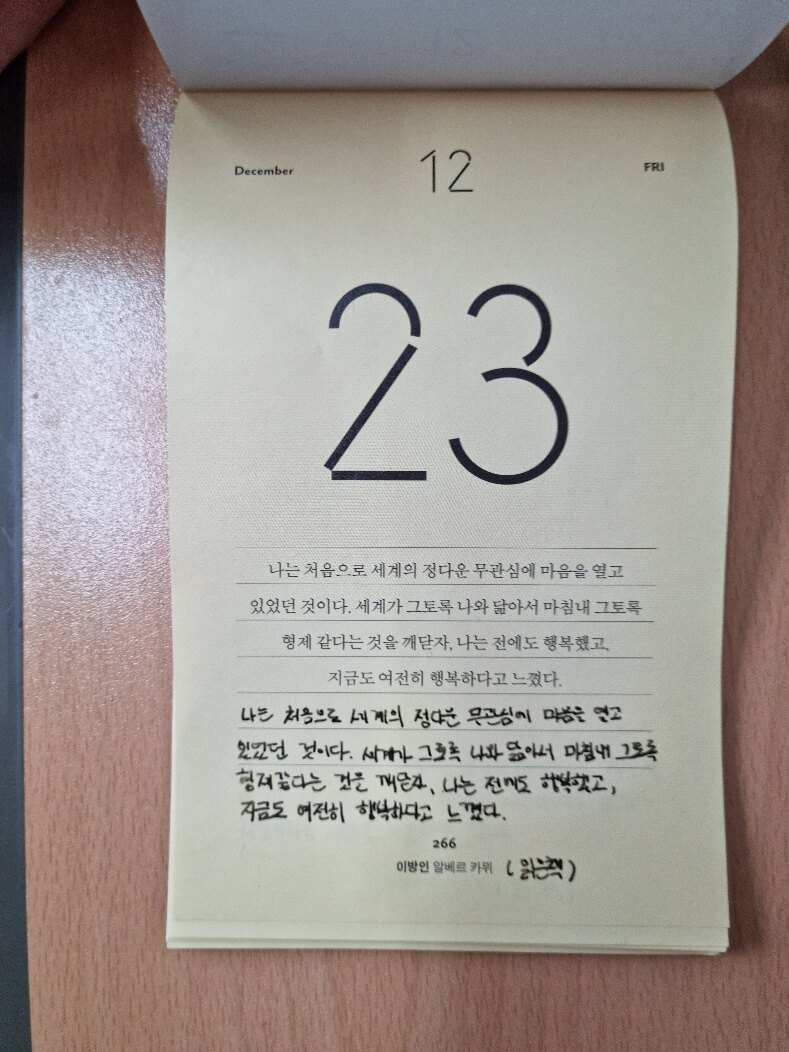 December 12 FRI
23
나는 처음으로 세계의 정다운 무관심에 마음을 열고
있었던 것이다. 세계가 그토록 나와 닮아서 마침내 그토록
형제 같다는 것을 깨닫자, 나는 전에도 행복했고,
지금도 여전히 행복하다고 느꼈다.
나는 처음으로 세계의 정다운 무관심에 마음을 열고
있었던 것이다. 세계가 그토록 나와 닮아서 마침내 그토록
형제같다는 것은 깨닫자, 나는 전에도 행복했고,
지금도 여전히 행복하다고 느꼈다.
266
이방인 알베르 카뮈 (읽은책)